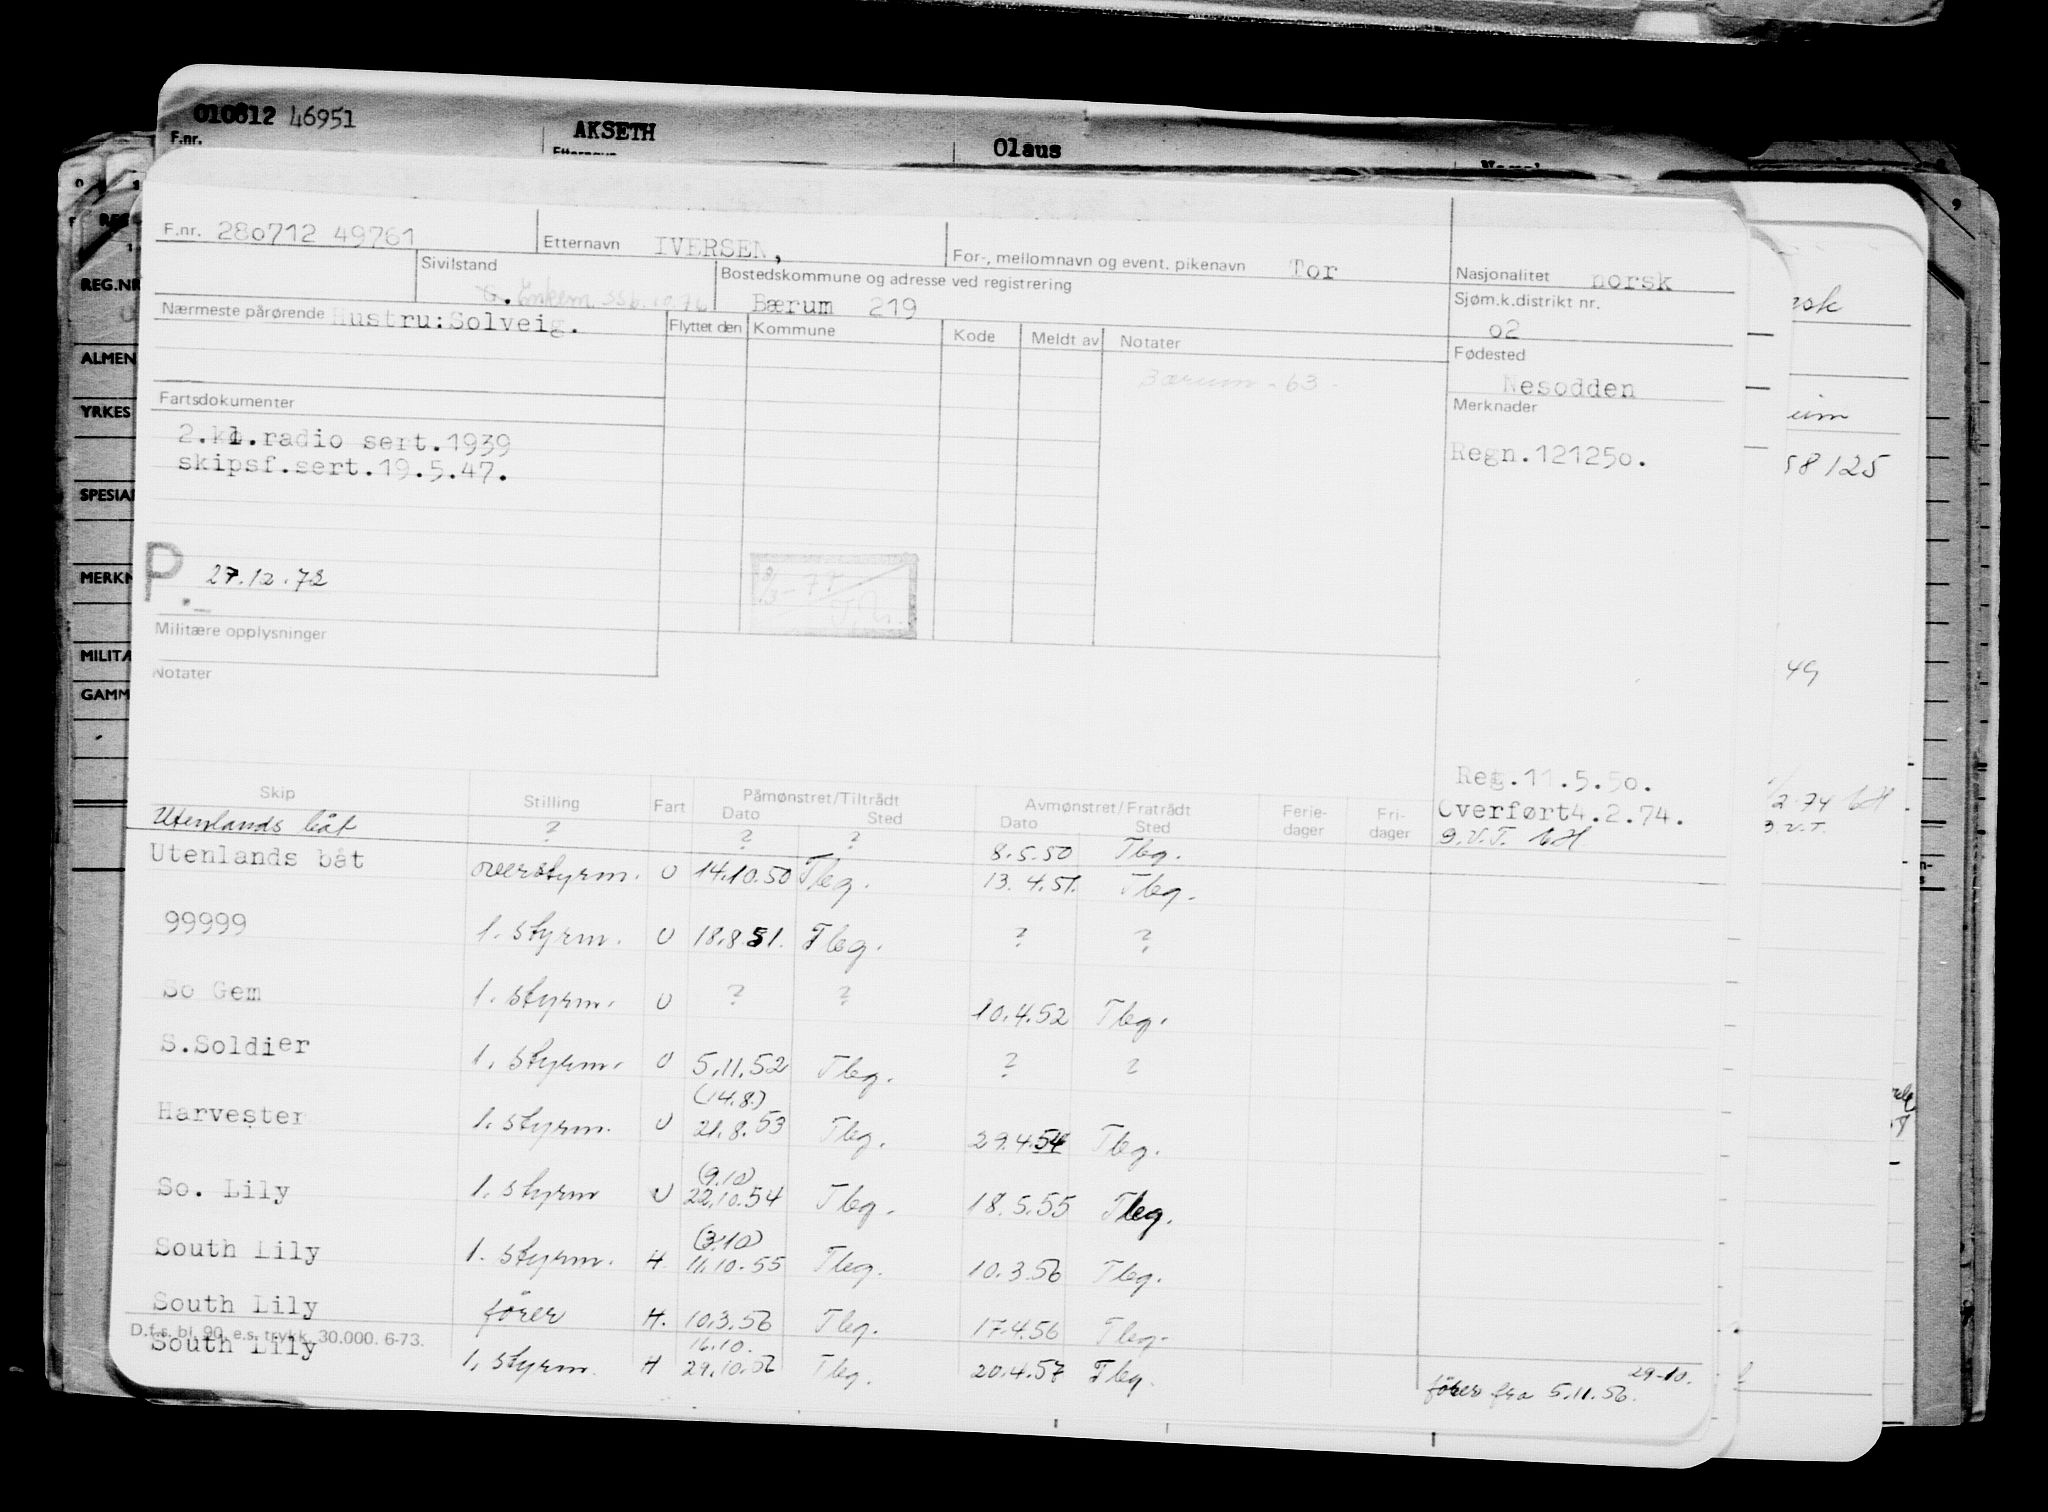 010812 46951 AKSETH Olaus
F.nr.
F.nr. 280712 49761 Etternavn IVERSEN, For-, mellomnavn og event. pikenavn Tor Nasjonalitet norsk
Sivilstand G. Enkem Bostedskommune og adresse ved registrering Bærum 219 Sjøm.k.distrikt nr. 02
Nærmeste pårørende Hustru:Solveig. Flyttet den Kommune Kode Meldt av Notater Fødested
Bærum - 63 - Nesodden
Fartsdokumenter Merknader
2.kl.radio sert.1939 Regn.121250.
skipsf.sert.19.5.47.
P. 27.12.72
Militære opplysninger
Notater
Reg.11.5.50.
Overført4.2.74.
Skip Stilling Fart Påmønstret/Tiltrådt Dato Sted Avmønstret/Fratrådt Dato Sted Ferie-dager Fri-dager
Utenlands båt ? ? ? 8.5.50 Tbg.
Utenlands båt overstyrm. U 14.10.50 Tbg. 13.4.51. Tbg.
99999 1. styrm. U 18.8 51. Tbg. ? ?
So Gem 1. styrm. U ? ? 10.4.52 Tbg.
S.Soldier 1. styrm. U 5.11.52 Tbg. ? ?
(14.8.)
Harvester 1. styrm. U 21.8.53 Tbg. 29.4.54 Tbg.
(9.10)
So. Lily 1. styrm U 22.10.54 Tbg. 18.5.55 Tbg.
(3.10)
South Lily 1. styrm. H. 11.10.55 Tbg. 10.3.56 Tbg.
South Lily fører H. 10.3.56 Tbg. 17.4.56 Tbg.
D.f.s. bl. 90. e.s. trykk. 30.000. 6-73.
16.10.
South Lily 1. styrm. H 29.10.56 Tbg. 20.4.57 Tbg. fører fra 5.11.56. 29-10.
REG.NR
ALMEN
YRKES
SPESIA
MERKN
MILITÆ
GAMM
58125
49